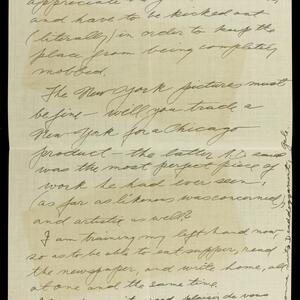 appreciate
and have to be kicked out
(literally) in order to keep the
place from being completely
mobbed.
The New York pictures must
be fine — will you trade a
New York for a Chicago
product — the latter
was the most perfect piece of
work he had ever seen,
(as far as likeness was concerned)
and artistic as well?
I am training my left hand now
so as to be able to eat supper, read
the newspaper, and write home, all
at one and the same time.